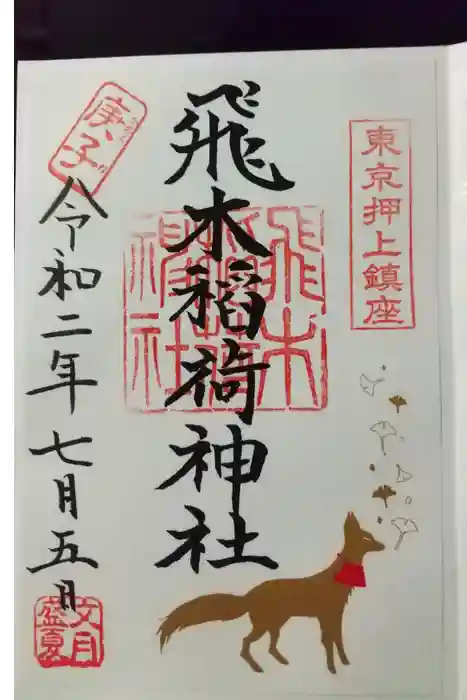 東京押上鎮座
飛木稲荷神社
飛木稲荷神社
庚子
令和二年七月五日
文月
盛夏